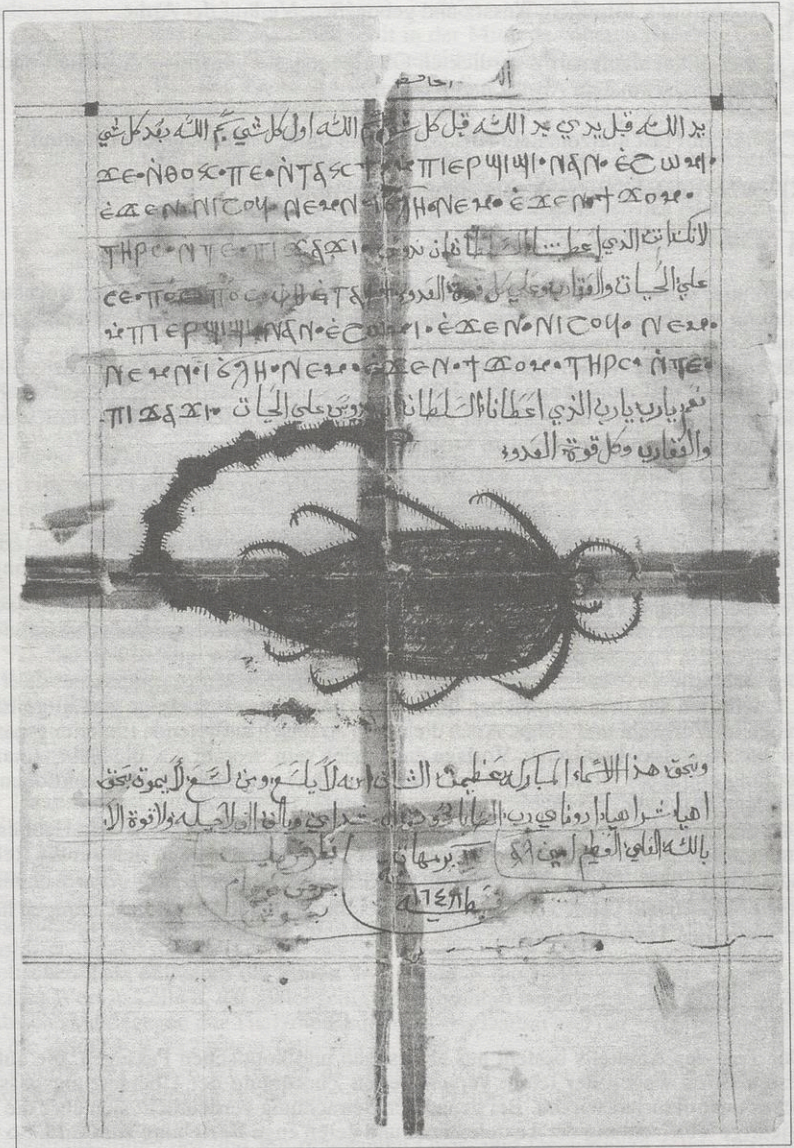 يد الله قبل يدي يد الله قبل كل شي بسم الله اول كل شي بسم الله بعد كل شي
ϫⲉ·ⲛ̇ⲑⲟⲕ·ⲡⲉ·ⲛ̇ⲧⲁⲕϯ ⲙ̇ⲡⲓⲉⲣϣⲓϣⲓ·ⲛⲁⲛ·ⲉ̇ϩⲱⲙⲓ·
ⲉ̇ϫⲉⲛ·ⲛⲓϩⲟϥ·ⲛⲉⲙ·ⲛⲓϭⲗⲏ·ⲛⲉⲙ·ⲉ̇ϫⲉⲛ·ϯϫⲟⲙ·
لانك انت الذي اعطيتنا السلطان ان ندوس ⲧⲏⲣⲥ·ⲛ̇ⲧⲉ·ⲡⲓϫⲁϫⲓ·
علي الحيات والعقارب وعلي كل قوة العدو ⲥⲉ·ⲡⲟ̅ⲥ̅ ⲡⲟ̅ⲥ̅ ⲫⲏ ⲉ̇ⲧⲁϥϯ
ⲙ̇ⲡⲓⲉⲣϣⲓϣⲓ·ⲛⲁⲛ·ⲉ̇ϩⲱⲙⲓ·ⲉ̇ϫⲉⲛ·ⲛⲓϩⲟϥ·ⲛⲉⲙ·
ⲛⲉⲙⲛ·ⲓϭⲗⲏ·ⲛⲉⲙ·ⲉ̇ϫⲉⲛ·ϯϫⲟⲙ·ⲧⲏⲣⲥ·ⲛ̇ⲧⲉ·
نعم يارب يارب الذي اعطانا السلطان ان ندوس على الحيات ⲡⲓϫⲁϫⲓ·
والعقارب وكل قوة العدو
وبحق هذا الاسماء المباركه عظيمت الشان انه لا يلسع ومن لسع لا يموت بحق
اهيا شراهيا ادوناي رب ولا قوة الا
بالله العلي العظيم امين برمهات
قبطيه